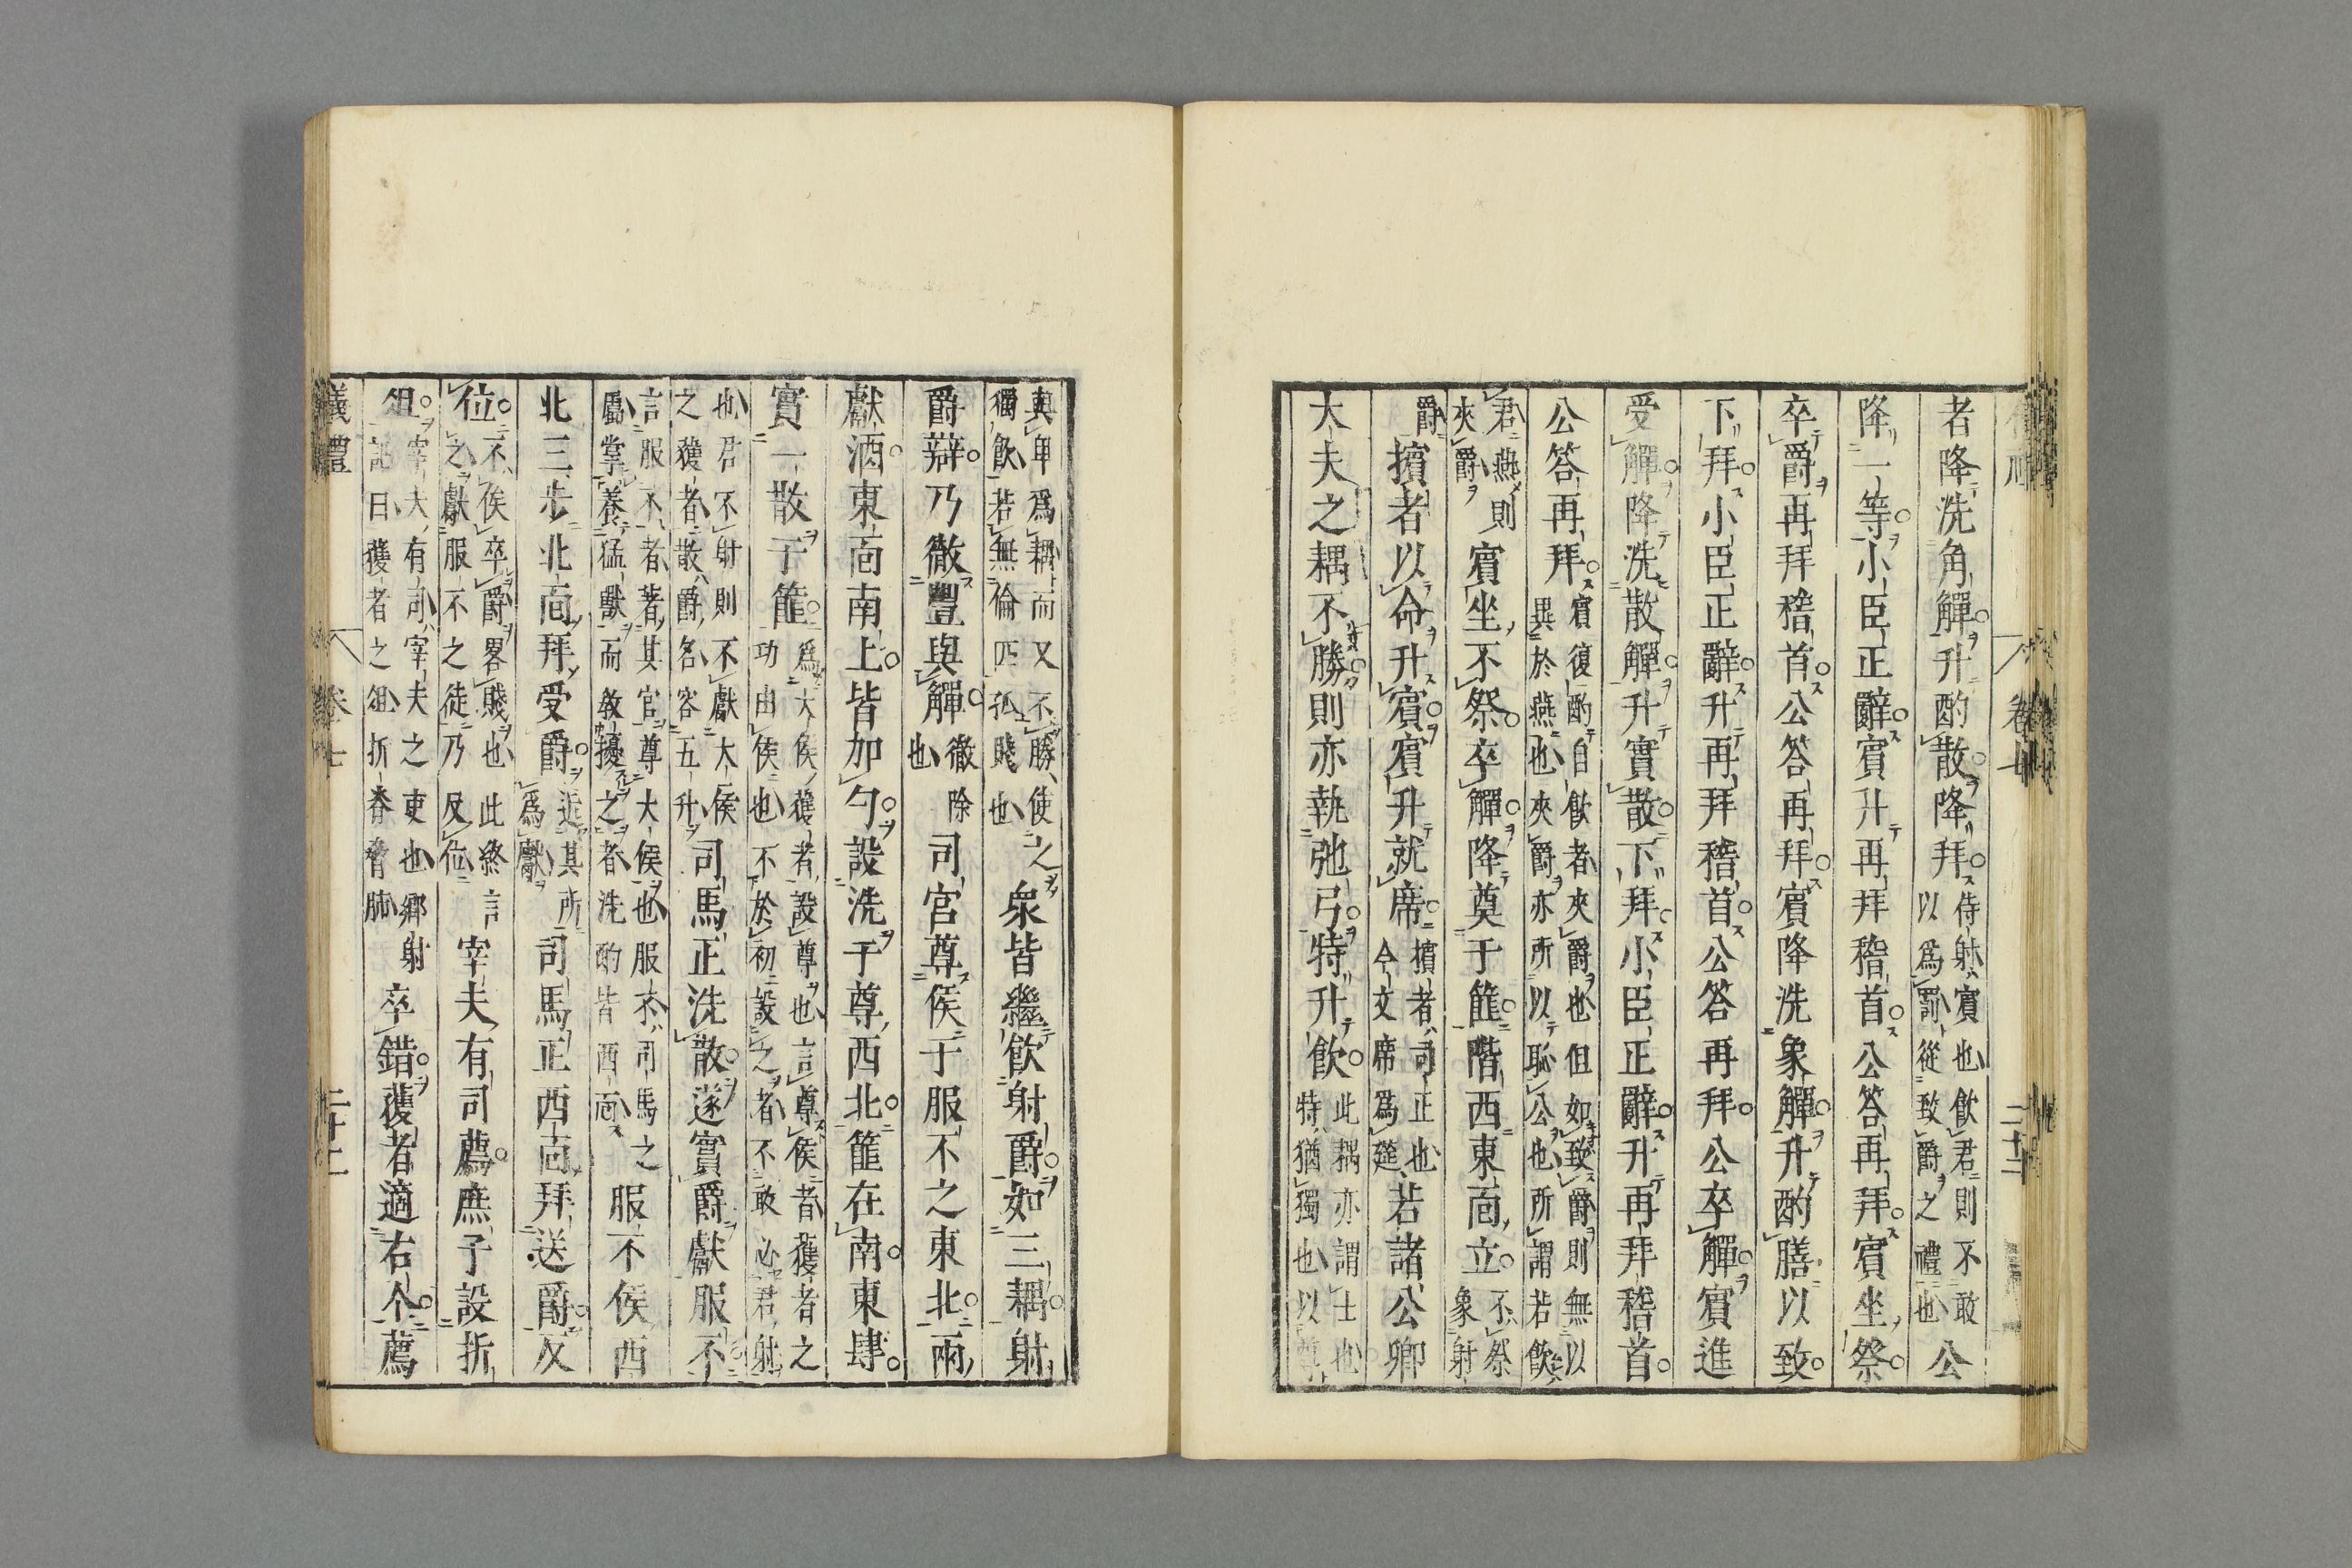 者降洗角觶升酌散降拜侍射賓也飮君則不敢以爲罰從致爵之禮也公
降一等小臣正辭賓升再拜稽首公答再拜賓坐祭
卒爵再拜稽首公答再拜賓降洗象觶升酌膳以致
下拜小臣正辭升再拜稽首公答再拜公卒觶賓進
受觶降洗散觶升實散下拜小臣正辭升再拜稽首
公答再拜賓復酌自飮者夾爵也但如致爵則無以異於燕也夾爵亦所以恥公也所謂若飮
君燕則夾爵賓坐不祭卒觶降奠于篚階西東靣立不祭象射
爵擯者以命升賓賓升就席擯者司正也今文席爲筵若諸公卿
大夫之耦不勝則亦執弛弓特升飮此耦亦謂士也特猶獨也以尊
與卑爲耦而又不勝使之獨飮若無倫匹孤賤也衆皆繼飮射爵如三耦射
爵辯乃徹豐與觶徹除也司宮尊侯于服不之東北兩
獻酒東靣南上皆加勺設洗于尊西北篚在南東肆
實一散于篚爲大侯獲者設尊也言尊侯者獲者之功由侯也不於初設之者不敢必君射
也君不射則不獻大侯之獲者散爵名容五升司馬正洗散遂實爵獻服不
言服不者著其官尊大侯也服不司馬之屬掌養猛獸而敎擾之者洗酌皆西靣服不侯西
北三步北靣拜受爵近其所爲獻司馬正西靣拜送爵反
位不俟卒爵畧賤也此終言之獻服不之徒乃反位宰夫有司薦庶子設折
俎宰夫有司宰夫之吏也鄉射記曰獲者之俎折脊脅肺卒錯獲者適右个薦
儀禮 卷七 二十二